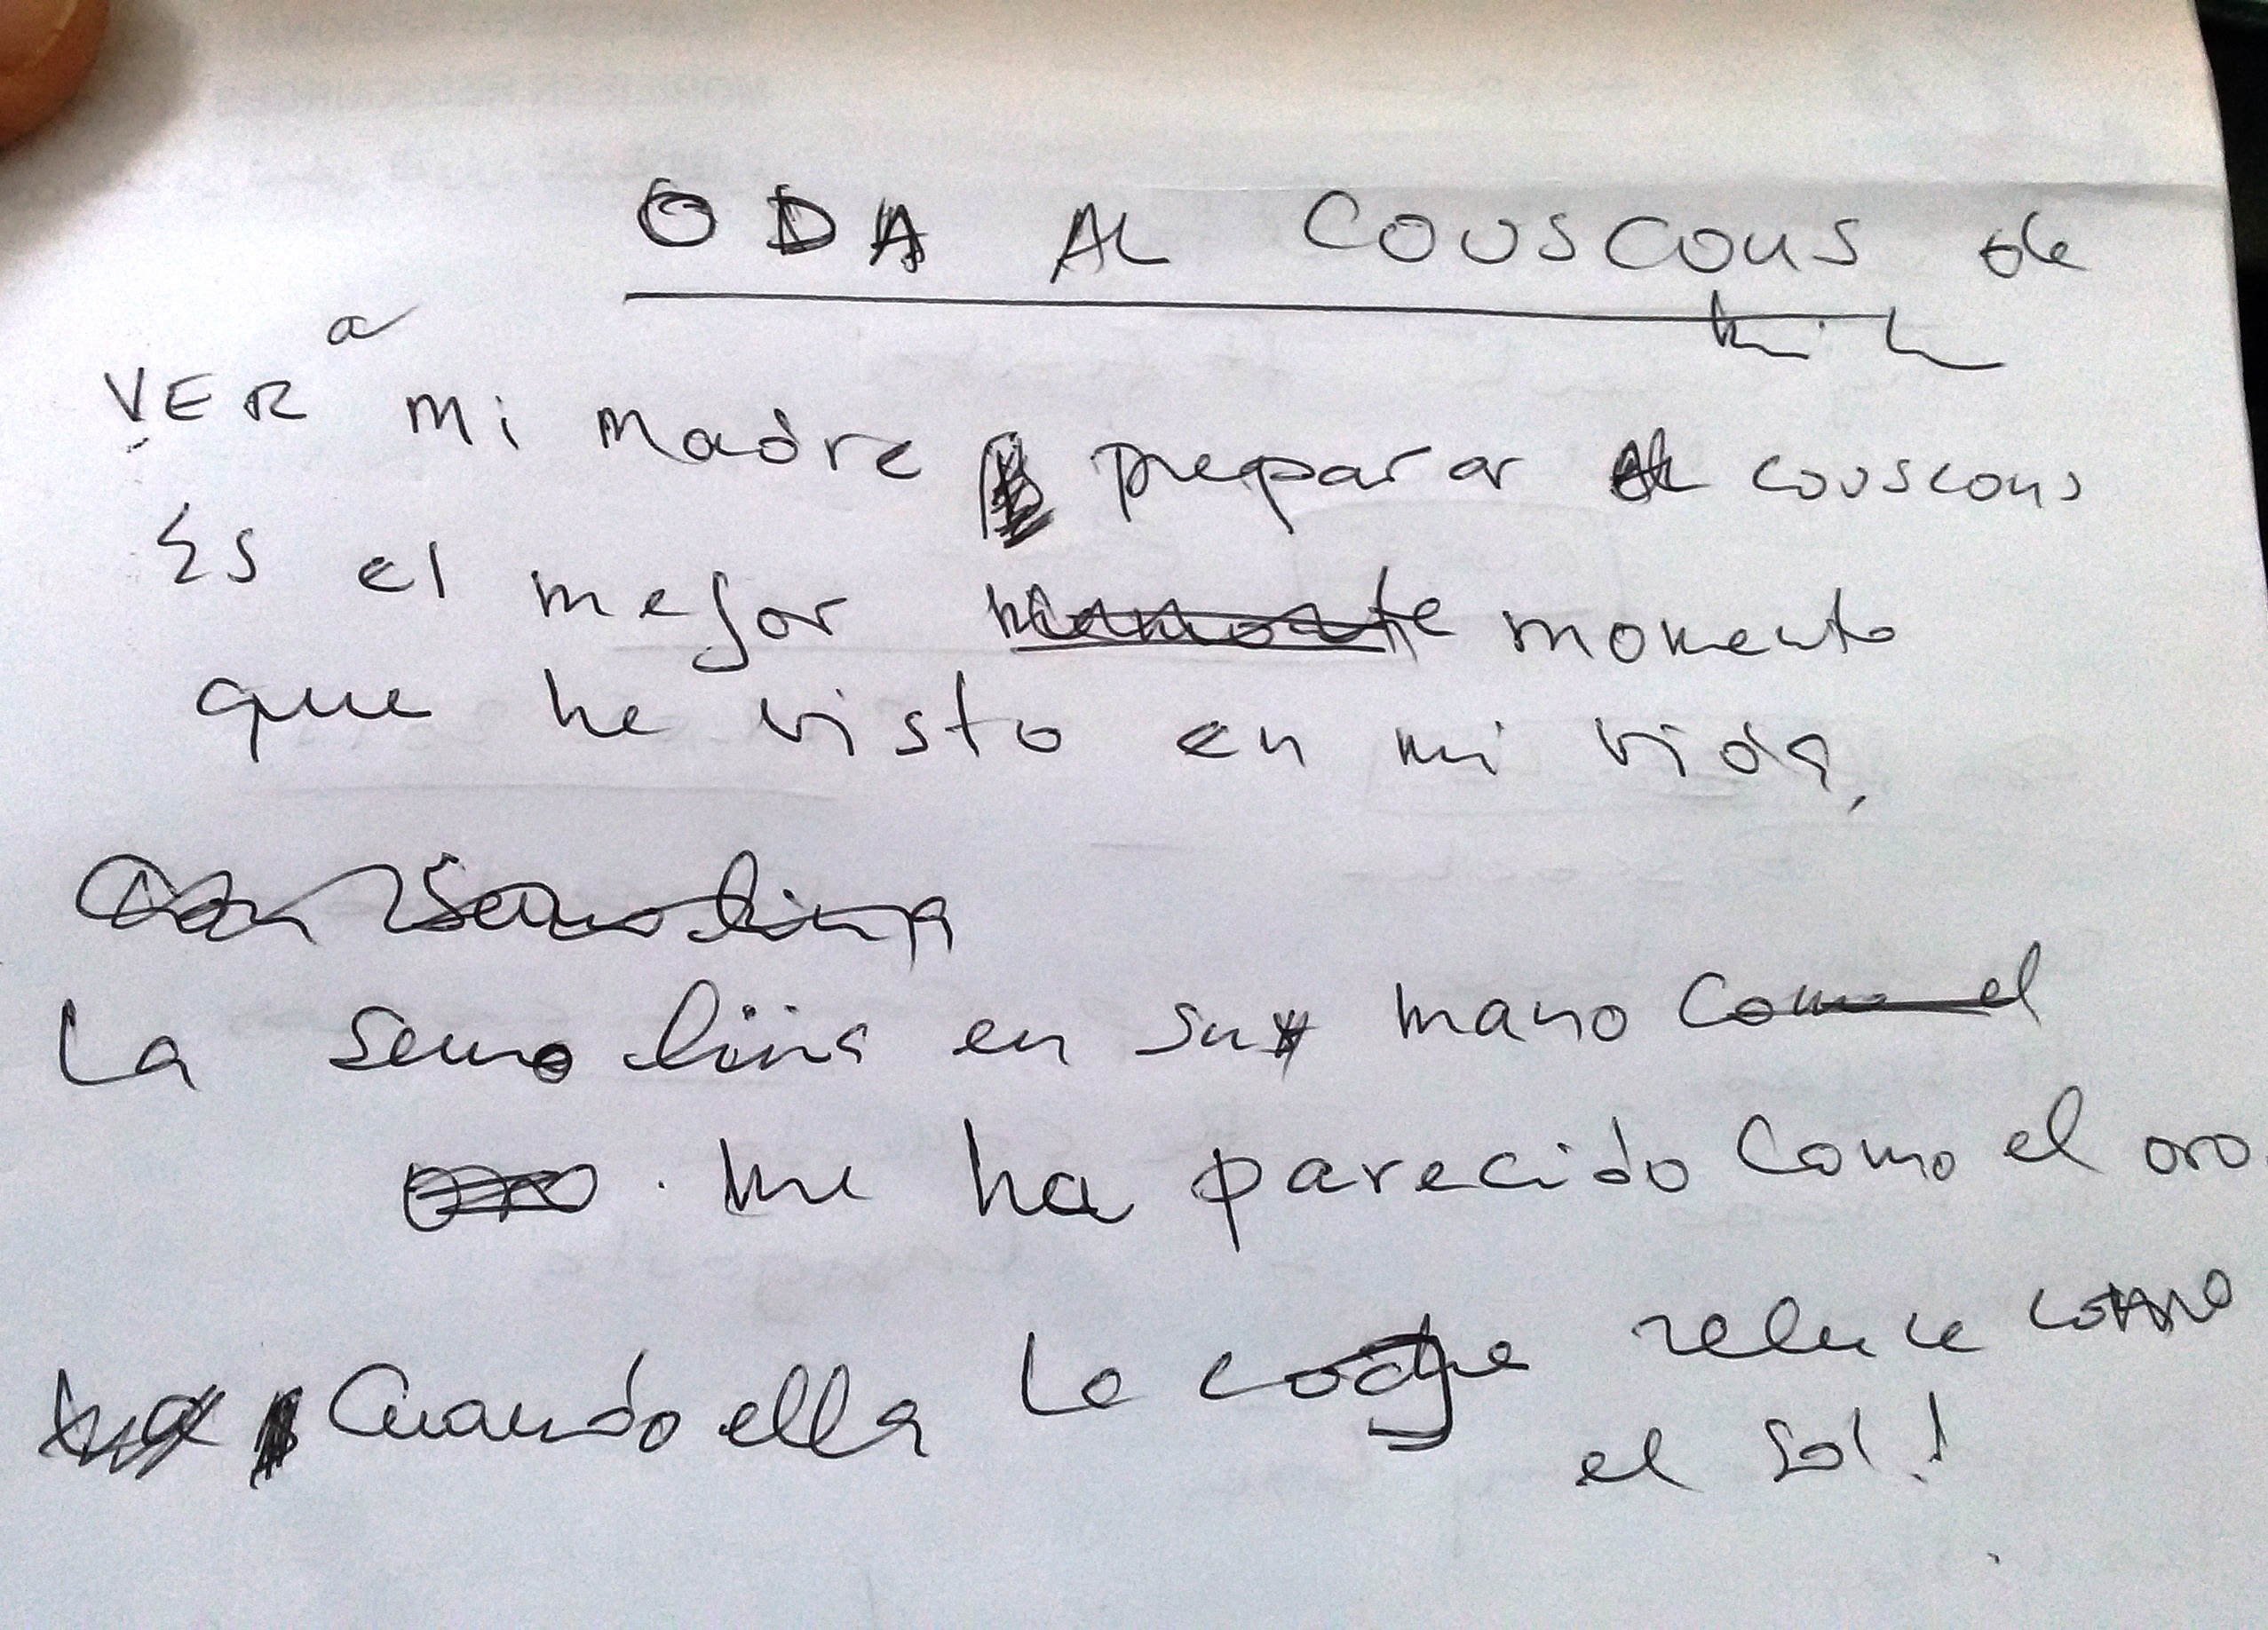 ODA AL COUSCOUS de
VER a mi madre preparar couscous
Es el mejor momento
que he visto en mi vida,
La semolina en su mano
me ha parecido como el oro.
Cuando ella lo coge reluce como
el sol!